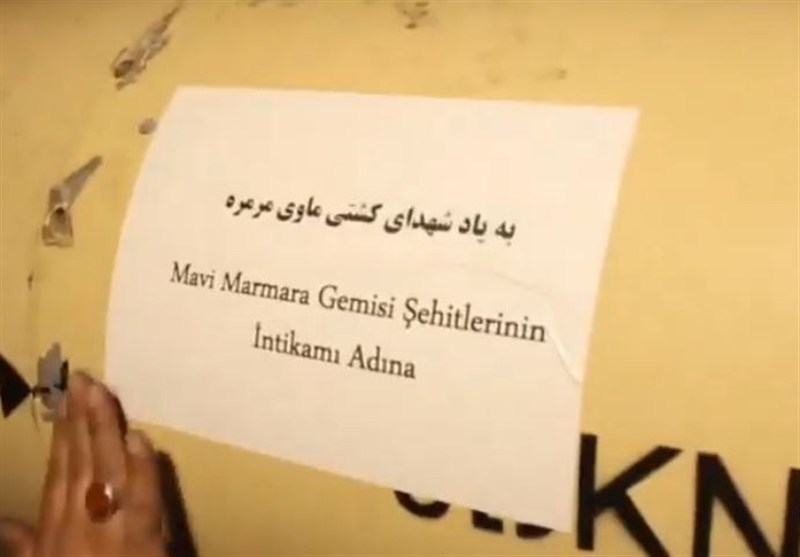 به یاد شهدای کشتی ماوی مرمره
Mavi Marmara Gemisi Şehitlerinin
İntikamı Adına
KN